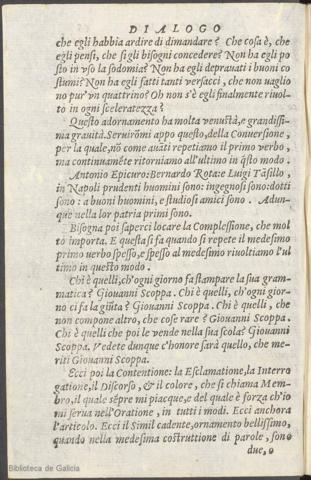 DIALOGO
che egli habbia ardire di dimandare? Che cosa è, che
egli pensi, che si gli bisogni concedere? Non ha egli po
sto in vso la sodomia? Non ha egli deprauati i buoni co
stumi? Non ha egli fatti tanti versacci, che non uaglio
no pur'vn quattrino? Oh non s'è egli finalmente riuol-
to in ogni sceleratezza?
Questo adornamento ha molta venustà, e grandissi-
ma grauità. Seruirõmi appo questo, della Conuersione,
per la quale, nõ come auãti repetiamo il primo verbo,
ma continuamẽte ritorniamo all'ultimo in q̃sto modo.
Antonio Epicuro: Bernardo Rota: e Luigi Tãsillo,
in Napoli prudenti huomini sono: ingegnosi sono: dotti
sono: a buoni huomini, e studiosi amici sono. Adun-
que nella lor patria primi sono.
Bisogna poi saperci locare la Complessione, che mol
to importa. E questa si fa quando si repete il medesimo
primo uerbo spesso, e spesso al medesimo riuoltiamo l'ul
timo in questo modo.
Chi è quelli, ch'ogni giorno fa stampare la sua gram-
matica? Giouanni Scoppa. Chi è quelli, ch'ogni gior-
no ci fa la giũta? Giouanni Scoppa. Chi è quelli, che
non compone altro, che cose rare? Giouanni Scoppa.
Chi è quelli che poi le vende nella sua scola? Giouanni
Scoppa. Vedete dunque c'honore sarà quello, che me-
riti Giouanni Scoppa.
Ecci poi la Contentione: la Esclamatione, la Interro
gatione, il Discorso, & il colore, che si chiama Mem-
bro, il quale sẽpre mi piacque, e del quale è forza ch'io
mi serua nell'Oratione, in tutti i modi. Ecci anchora
l'articolo. Ecci il Simil cadente, ornamento bellissimo,
quando nella medesima costruttione di parole, sono
due, o
Biblioteca de Galicia